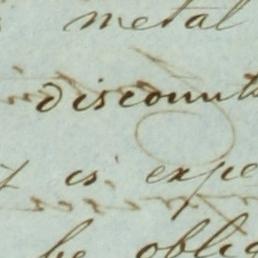 metal
discount
is expe
be oblig